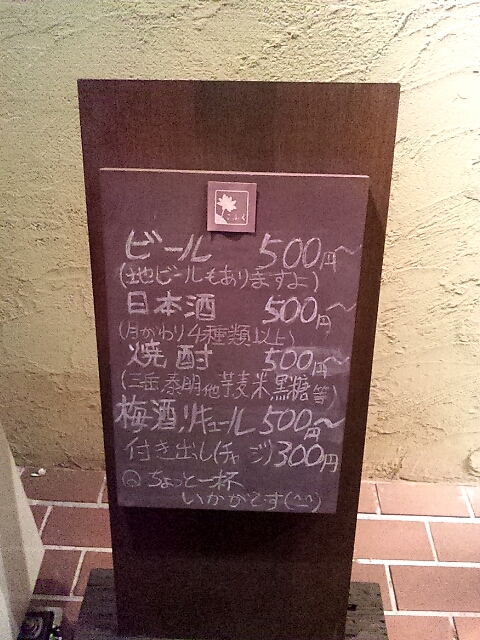 こふく
ビール 500円~
(地ビールもありますよ)
日本酒 500円~
(月がわり4種類以上)
焼酎 500円~
(三岳、泰明、他芋麦米黒糖等)
梅酒リキュール 500円~
付き出し(チャージ)300円
ちょっと一杯
いかがです(^^)